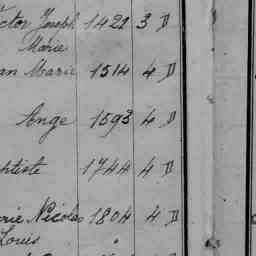 ctor Joseph 1421 3 D
Marie
an Marie 1514 4 D
Ange 1593 4 D
aptiste 1744 4 D
arie Nicolas 1804 4 D
Louis